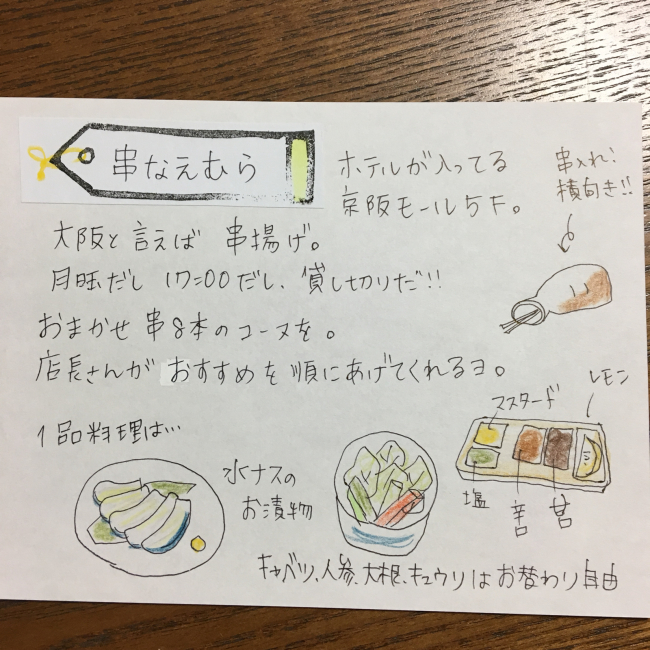 串なえむら
ホテルが入ってる
京阪モール5F。
串入れ!
横向き!!
大阪と言えば 串揚げ。
月曜だし 17:00だし、貸し切りだ!!
おまかせ 串8本のコースを。
店長さんが おすすめを 順にあげてくれるヨ。
1品料理は…
水ナスの
お漬物
マスタード
レモン
塩
辛口
甘口
キャベツ、人参、大根、キュウリはお替わり自由